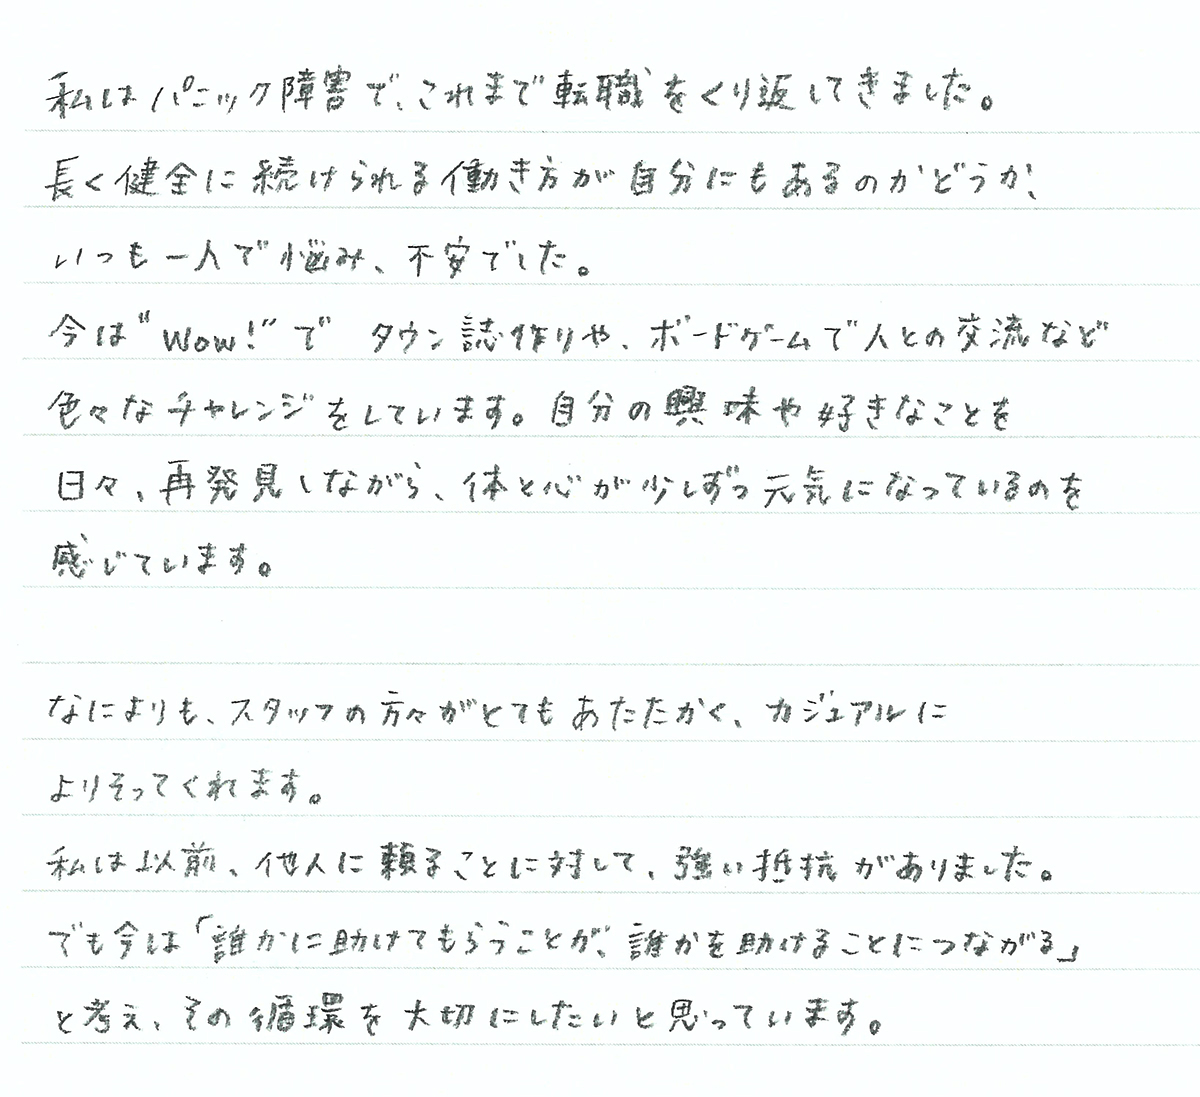 私はパニック障害で、これまで転職をくり返してきました。
長く健全に続けられる働き方が自分にもあるのかどうか、
いつも一人で悩み、不安でした。
今は"Wow!"で タウン誌作りや、ボードゲームで人との交流など
色々なチャレンジをしています。自分の興味や好きなことを
日々、再発見しながら、体と心が少しずつ元気になっているのを
感じています。
なによりも、スタッフの方々がとてもあたたかく、カジュアルに
よりそってくれます。
私は以前、他人に頼ることに対して、強い抵抗がありました。
でも今は「誰かに助けてもらうことが、誰かを助けることにつながる」
と考え、その循環を大切にしたいと思っています。